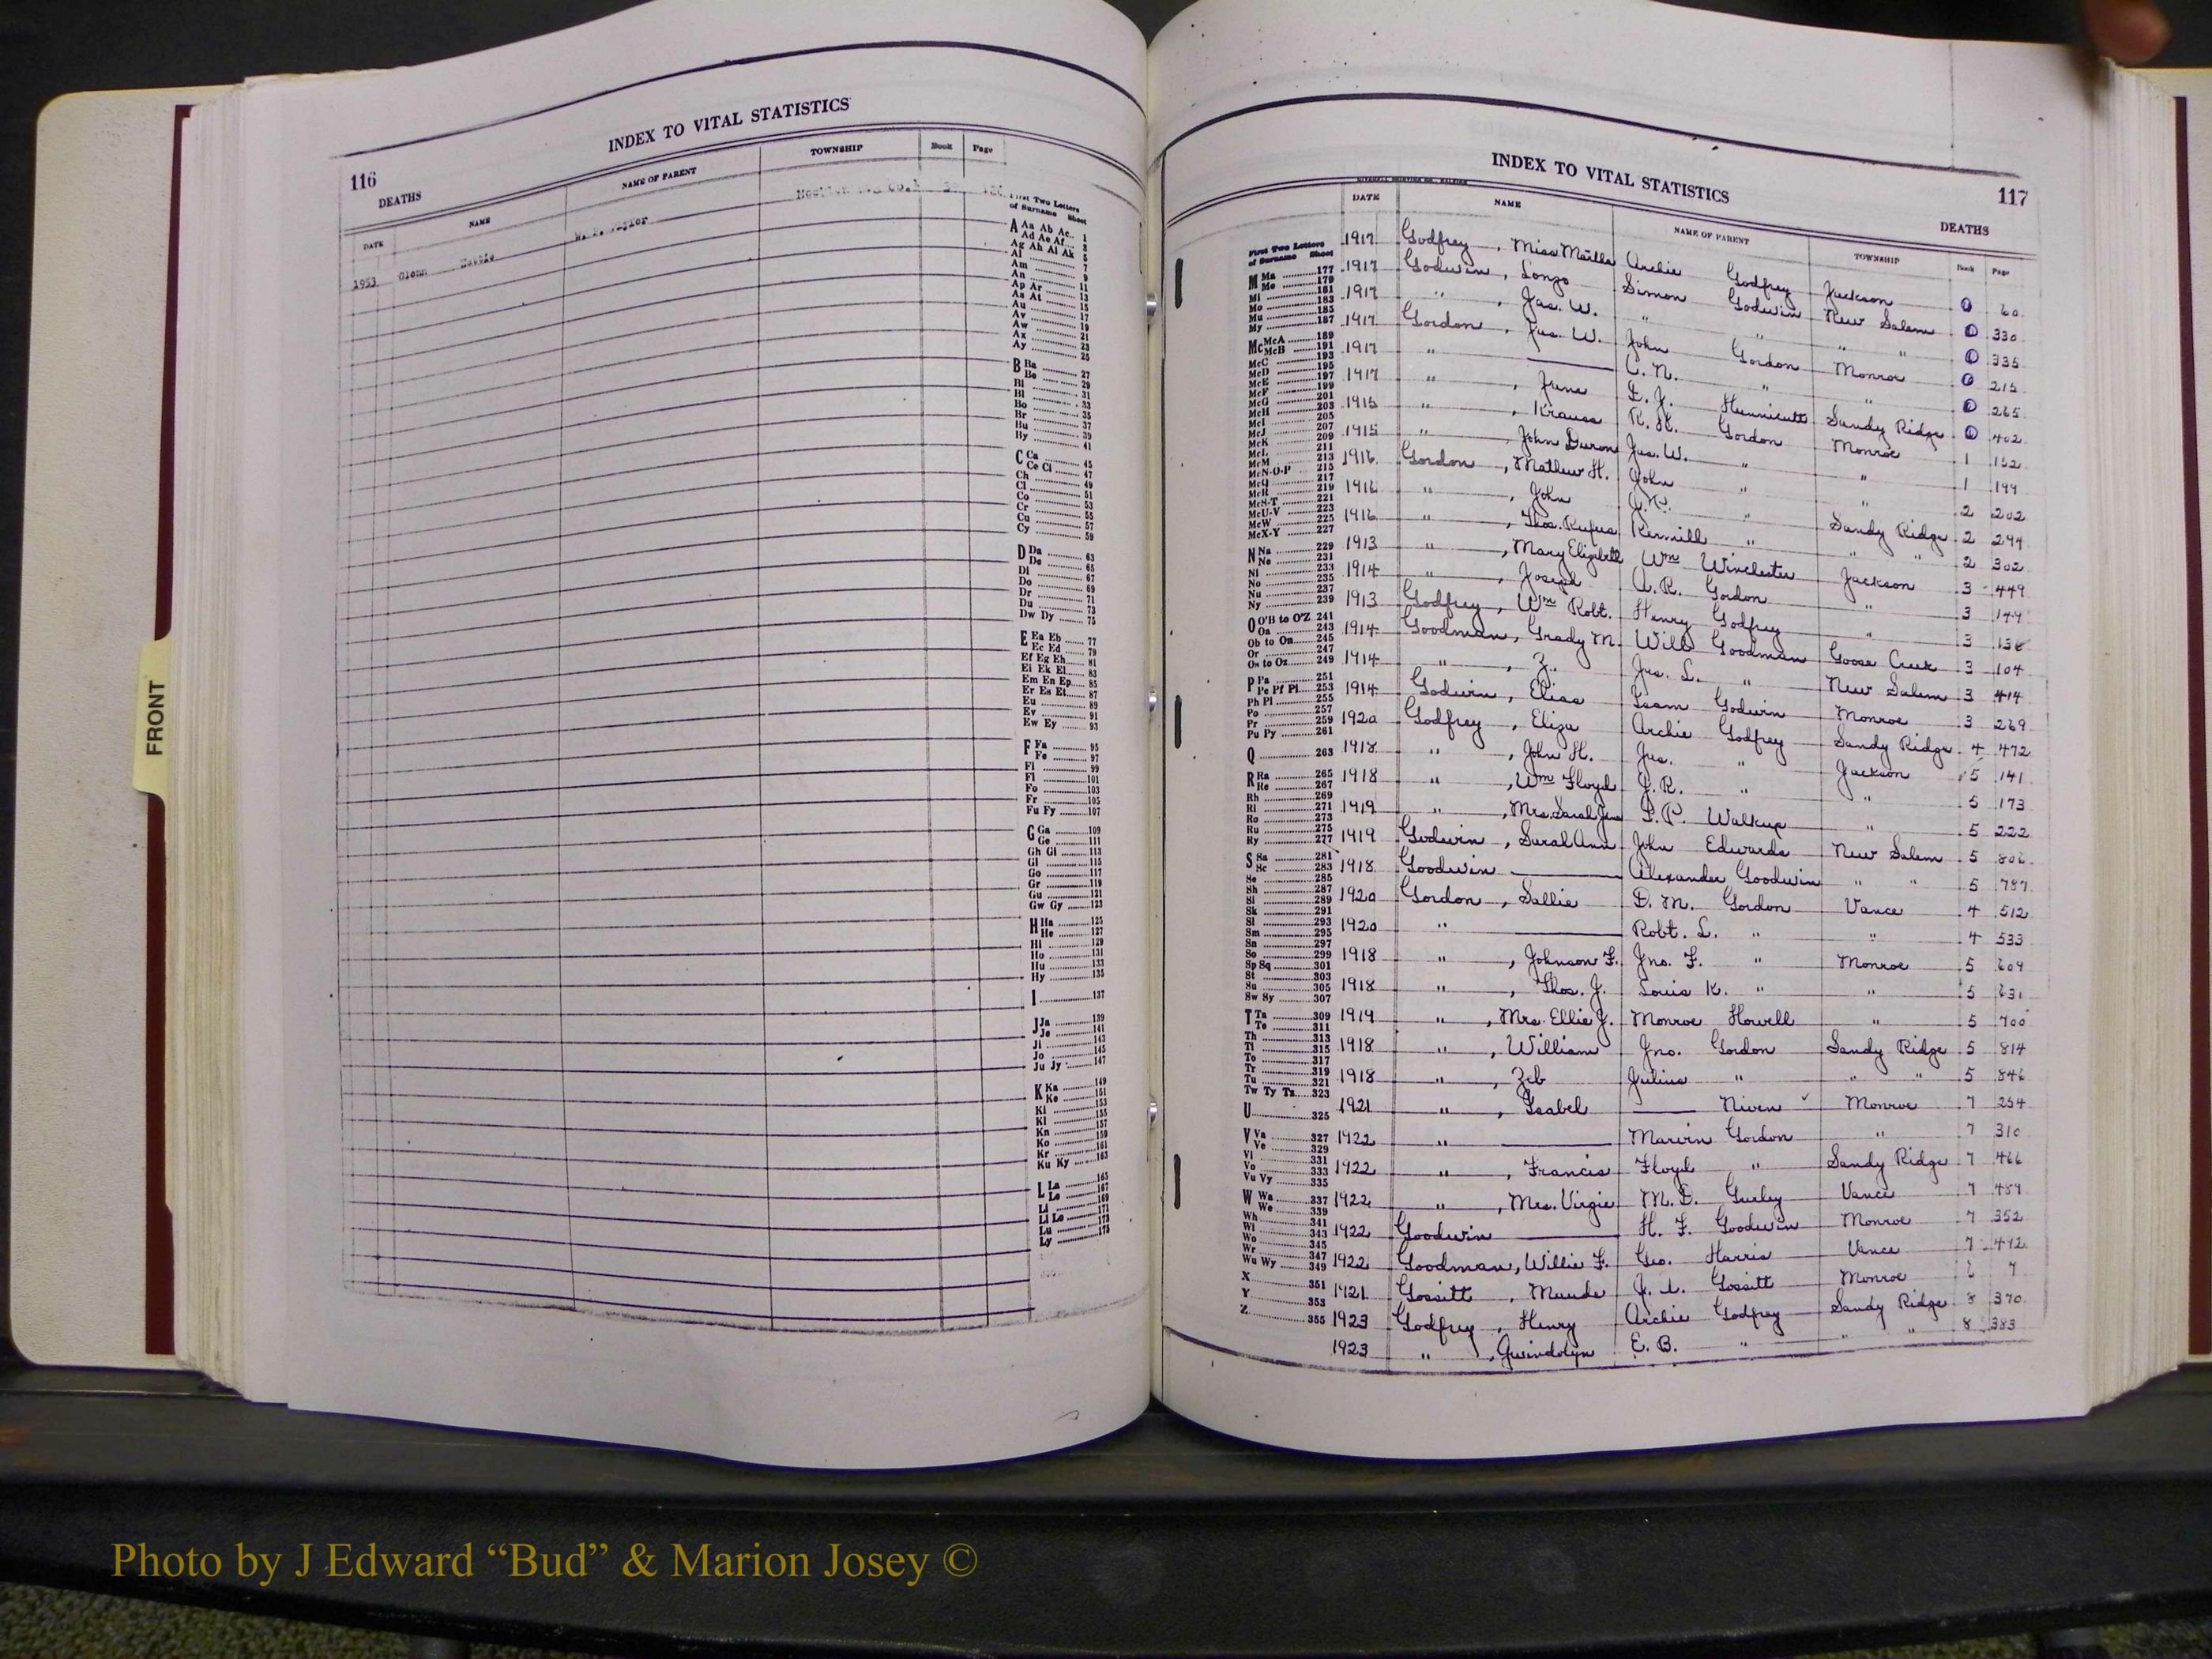 INDEX TO VITAL STATISTICS
116
DEATHS
DATE NAME NAME OF PARENT TOWNSHIP Book Page
1953 Glenn Hattie W. P. Taylor
First Two Letters of Surname Sheet
A Aa Ab Ac 1
Ad Ae Af 3
Ag Ah Ai Ak 5
Al 7
Am 9
An 11
Ap Ar 13
As At 15
Au 17
Av 19
Aw 21
Ax 23
Ay 25
B Ba 27
Be 29
Bi 31
Bl 33
Bo 35
Br 37
Bu 39
By 41
C Ca 45
Ce Ci 47
Ch 49
Cl 51
Co 53
Cr 55
Cu 57
Cy 59
D Da 63
De 65
Di 67
Do 69
Dr 71
Du 73
Dw Dy 75
E Ea Eb 77
Ec Ed 79
Ef Eg Eh 81
Ei Ek El 83
Em En Ep 85
Er Es Et 87
Eu 89
Ev 91
Ew Ey 93
F Fa 95
Fe 97
Fi 99
Fl 101
Fo 103
Fr 105
Fu Fy 107
G Ga 109
Ge 111
Gh Gi 113
Gl 115
Go 117
Gr 119
Gu 121
Gw Gy 123
H Ha 125
He 127
Hi 129
Ho 131
Hu 133
Hy 135
I 137
J Ja 139
Je 141
Ji 143
Jo 145
Ju Jy 147
K Ka 149
Ke 151
Ki 153
Kl 155
Kn 157
Ko 159
Kr 161
Ku Ky 163
L La 165
Le 167
Li 169
Ll Lo 171
Lu 173
Ly 175
INDEX TO VITAL STATISTICS
117
DEATHS
DATE NAME NAME OF PARENT TOWNSHIP Book Page
First Two Letters of Surname Sheet
M Ma 177
Me 179
Mi 181
Mo 183
Mu 185
My 187
Mc McA 189
McB 191
McC 193
McD 195
McE 197
McF 199
McG 201
McH 203
McI 205
McJ 207
McK 209
McL 211
McM 213
McN-O-P 215
McQ 217
McR 219
McS-T 221
McU-V 223
McW 225
McX-Y 227
N Na 229
Ne 231
Ni 233
No 235
Nu 237
Ny 239
O O'B to O'Z 241
Oa 243
Ob to On 245
Or 247
Os to Oz 249
P Pa 251
Pe Pf Pi 253
Ph Pl 255
Po 257
Pr 259
Pu Py 261
Q 263
R Ra 265
Re 267
Rh 269
Ri 271
Ro 273
Ru 275
Ry 277
S Sa 281
Sc 283
Se 285
Sh 287
Si 289
Sk 291
Sl 293
Sm 295
Sn 297
So 299
Sp Sq 301
St 303
Su 305
Sw Sy 307
T Ta 309
Te 311
Th 313
Ti 315
To 317
Tr 319
Tu 321
Tw Ty Tz 323
U 325
V Va 327
Ve 329
Vi 331
Vo 333
Vu Vy 335
W Wa 337
We 339
Wh 341
Wi 343
Wo 345
Wr 347
Wu Wy 349
X 351
Y 353
Z 355
1917 Godfrey, Miss Archie Godfrey Jackson 0 60
1917 Godwin, Lonzo Simon Godwin New Salem 0 330
1917 " , Jas. W. " " " " 0 335
1917 Gordon, Jas. W. John Gordon Monroe 0 215
1917 " — C. N. " " 0 265
1917 " , June D. J. Hunnicutt Sandy Ridge 0 402
1915 " , Krauss R. K. Gordon Monroe 1 152
1915 " John Duron Jas. W. " " 1 199
1916 Gordon, Mathew H. John " " 2 202
1916 " , John " Sandy Ridge 2 294
1916 " , Thos. Rufus " " " 2 302
1913 " , Mary Elizabeth Wm Winchester Jackson 3 449
1914 " , Joseph A. R. Gordon " 3 149
1913 Godfrey, Wm Robt. Henry Godfrey " 3 138
1914 Goodman, Grady M. Will Goodman Goose Creek 3 104
1914 " , Z. Jas. L. " New Salem 3 414
1914 Godwin, Elias Isam Godwin Monroe 3 269
1920 Godfrey, Eliza Archie Godfrey Sandy Ridge 4 472
1918 " , John H. Jas. " Jackson 5 141
1918 " , Wm Floyd J. R. " " 5 173
1919 " , Mrs. Sarah Jane P. P. Walkup " 5 222
1919 Godwin, Sarah Ann John Edwards New Salem 5 806
1918 Goodwin — Alexander Goodwin " " 5 787
1920 Gordon, Sallie D. M. Gordon Vance 4 512
1920 " — Robt. L. " " 4 533
1918 " , Johnson F. Jno. F. " Monroe 5 609
1918 " , Thos. J. Louis K. " " 5 631
1919 " , Mrs. Ellie J. Monroe Howell " 5 700
1918 " , William Jno. Gordon Sandy Ridge 5 814
1918 " , Zeb Julius " " " 5 846
1921 " , Isabel — Niven Monroe 7 254
1922 " — Marvin Gordon " 7 310
1922 " , Francis Floyd " Sandy Ridge 7 466
1922 " , Mrs. Virgie M. D. Gurley Vance 7 489
1922 Goodwin — H. F. Goodwin Monroe 7 352
1922 Goodman, Willie F. Geo. Harris Vance 7 412
1921 Gossett, Maude Gossett Monroe 6 7
1923 Godfrey, Henry Archie Godfrey Sandy Ridge 8 370
1923 " , Gwindolyn E. B. " " " 8 383
FRONT
Photo by J Edward “Bud” & Marion Josey ©